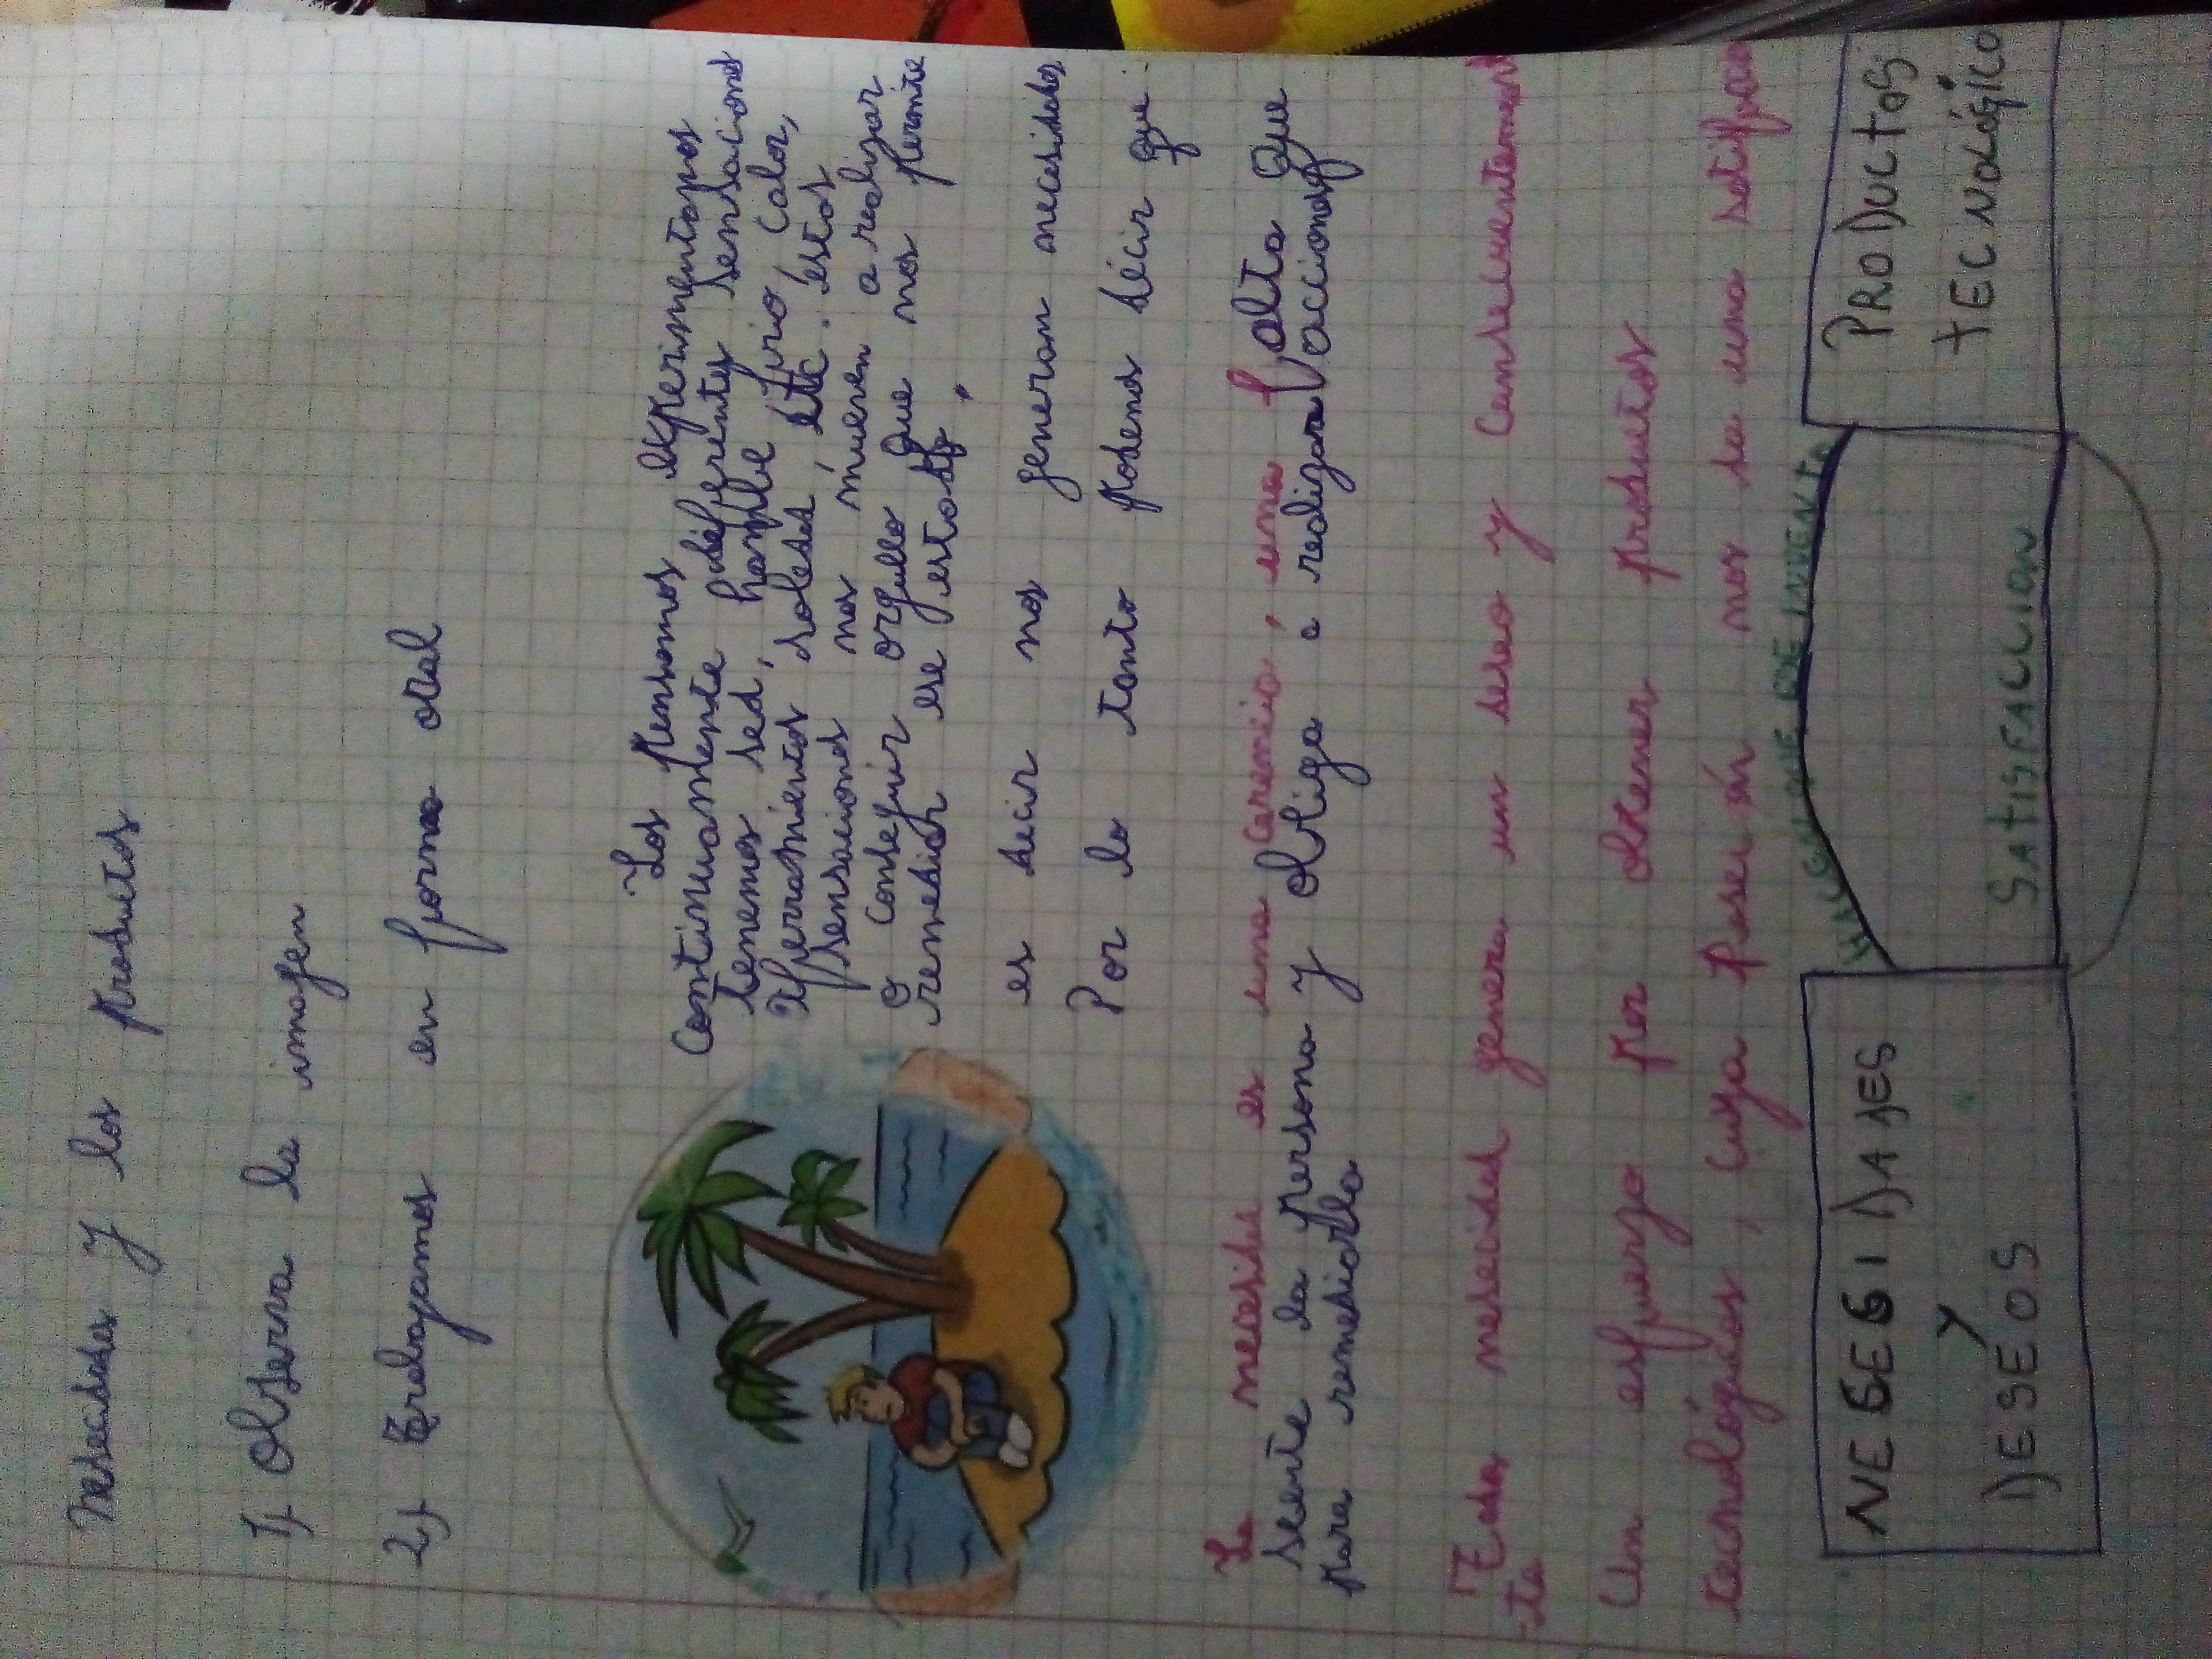 Nesecidades y los productos
1) Observa la imagen
2) Trabajamos en forma oral
Los Pensomos experimentamos
Continuamente diferentes sensaciones
tenemos sed, hambre frio, Calor,
soledad, etc. éstas
sensaciones nos mueven a realizar
o conseguir orgullo que nos permite
remediar ese estado.
es decir nos generan necesidades
Por lo tanto podemos decir que
La necesida es una carencia, una falta que
siente la persona y obliga a realizar acciones
para remediarlo
Toda nesecidad genera un deseo y Consecuentement
-ta
Un esfuerzo por obtener productos
tecnológicos, cuya Posesión nos da una satifacc
HACE QUE SE INVENTE
NESESIDADES
Y
DESEOS
SATISFACCION
PRODUCTOS
TECNOLÓGICO